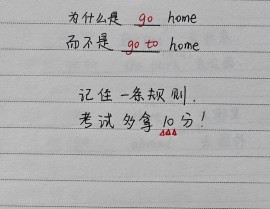 为什么是 go home
而不是 go to home
记住一条规则.
考试多拿10分！